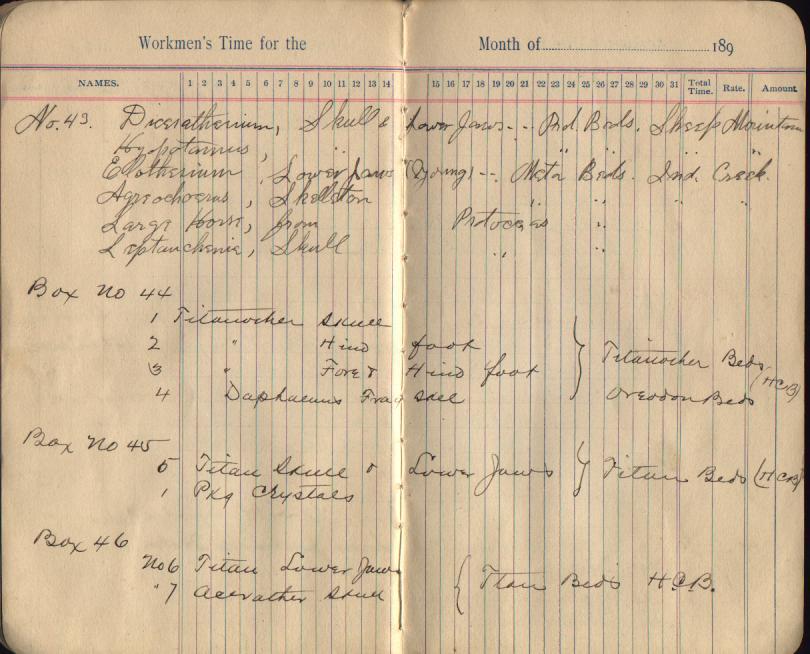 Workmen's Time for the Month of 189
NAMES. 1 2 3 4 5 6 7 8 9 10 11 12 13 14 15 16 17 18 19 20 21 22 23 24 25 26 27 28 29 30 31 Total Time. Rate. Amount
No. 43. Diceratherium, Skull & Lower Jaws - - Beds. Sheep Mountain
" " " "
Elotherium, Lower Jaws (Young) - - Meta Beds. Ind. Creek.
Agriochoerus, Skelleton " " " "
Large Horse, from Protoceras "
Leptauchenia, Skull " "
Box No 44
1 Titanother Skull
2 " Hind foot
3 " Fore & Hind foot } Titanother Beds (HCB)
4 Daphaenus Frag Skel Oreodon Beds
Box No 45
5 Titan Skull & Lower Jaws } Titan Beds (HCB)
1 Pkg Crystals
Box 46
No 6 Titan Lower Jaws
" 7 Acerather Skull { Titan Beds H.C.B.